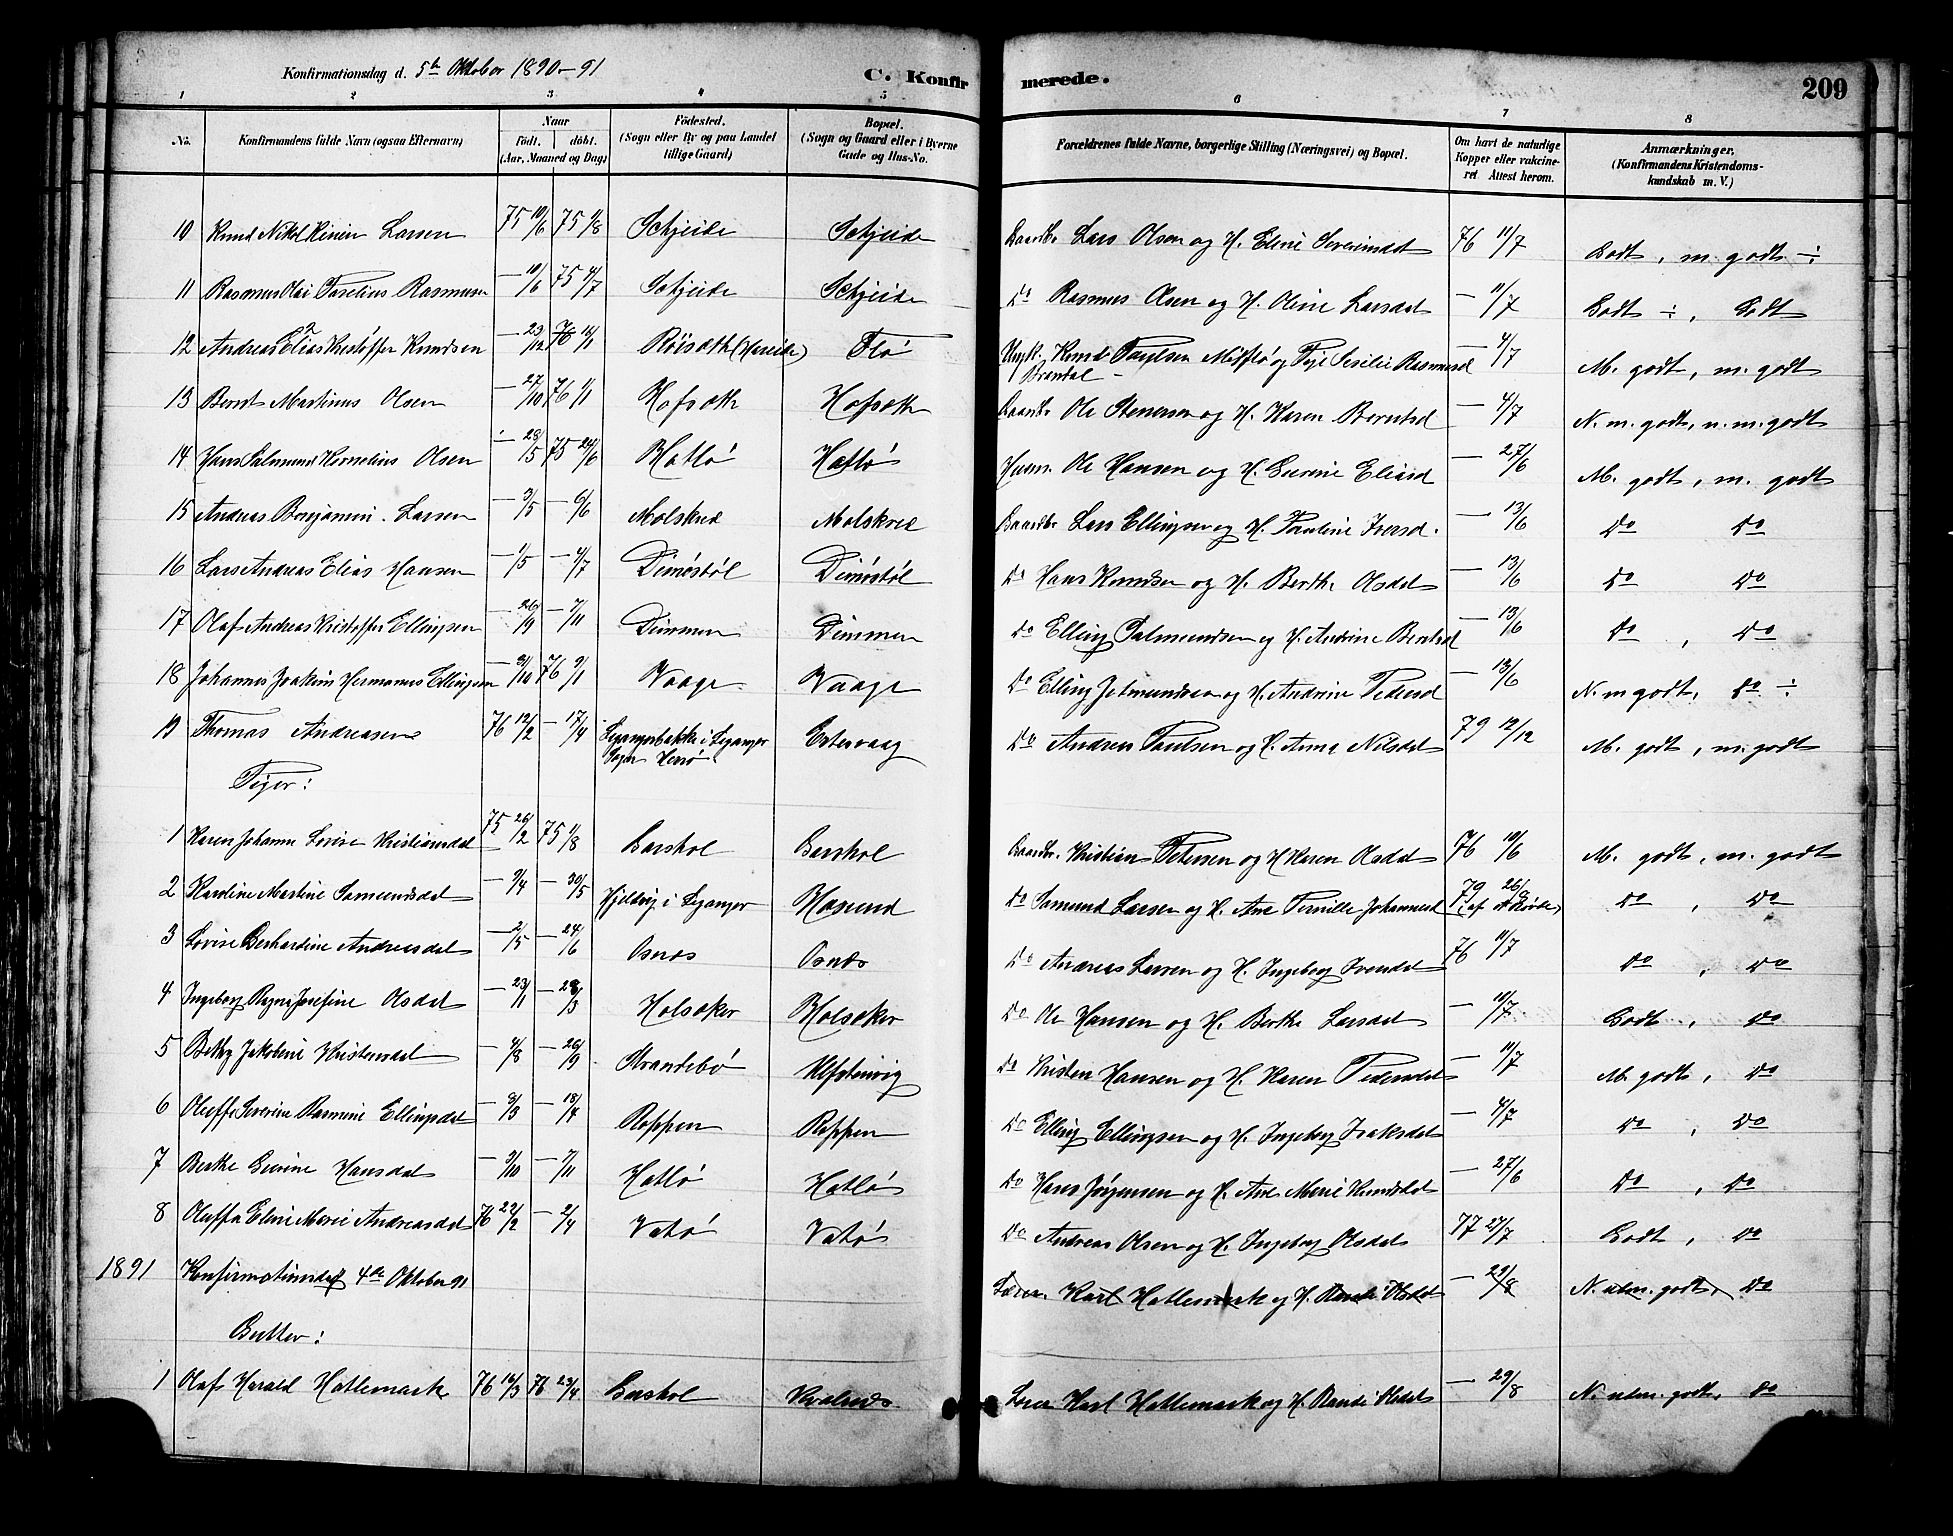 Konfirmationsdag d. 5te Oktober 1890-91
C. Konfirmerede.
209
1 2 3 4 5 6 7 8
No. | Konfirmandens fulde Navn (ogsaa Efternavn) | Naar Født. døbt. (Aar, Maaned og Dag) | Fødested. (Sogn eller By og paa Landet tillige Gaard) | Bopæl. (Sogn og Gaard eller i Byerne Gade og Hus-No. | Forældrenes fulde Navne, borgerlige Stilling (Næringsvei) og Bopæl. | Om havt de naturlige Kopper eller vakcineret Attest herom. | Anmærkninger, (Konfirmandens Kristendomskundskab m. V.)
10 Knud Nikol Larsen 75 10/6 75 1/8 Schjeide Schjeide Gaardbr. Lars Olsen og H. Eline Severinsdat 76 11/7 Godt, m. godt ÷
11 Rasmus Olai Rasmusen — 10/6 75 4/7 Schjeide Schjeide Do Rasmus Olsen og H. Oline Larsdat — 11/7 Godt ÷, Godt
12 Andreas Elias Kristoffer Knudsen — 23/12 76 16/1 Röisæth (Hareide) Flø Ungk. Knud Paulsen Brandal og Pige Sesilie Rasmusd — 4/7 M. godt, m. godt
13 Bernt Martinus Olsen — 27/10 76 1/1 Hofsæth Hofsæth Gaardbr Ole Stenersen og H. Karen Berntsd — 4/7 N. m. godt, n. m. godt
14 Hans Salmund Kornelius Olsen — 28/5 75 24/6 Hatlø Hatlø Husm. Ole Hansen og H. Gurine Eliasd — 27/6 M. godt, m. godt
15 Andreas Benjamin Larsen — 3/5 — 6/6 Molskred Molskred Gaardbr Lars Ellingsen og H. Pauline Iversd. — 13/6 Do Do
16 Lars Andreas Elias Hansen — 1/5 — 4/7 Dimøstøl Dimøstøl Do Hans Knudsen og H. Berthe Olsdat — 13/6 Do Do
17 Olaf Andreas Kristoffer Ellingsen — 26/9 — 7/11 Dimmen Dimmen Do Elling Salmundsen og H. Andrine Berntsd — 13/6 Do, Do
18 Johannes Joakim Hermanus Ellingsen 76 9/1 Vaage Vaage Do Elling Jetmundsen og H. Andrine Pedersd — 13/6 N. m godt, Do ÷
19 Thomas Andreasen 76 12/2 — 17/4 Leganger Sogn Herø Do Andreas Paulsen og H. Anna Nilsdat 79 12/12 M. godt, m. godt
Piger:
1 Karen Johanne Lovise Kristiansdat 75 26/2 75 1/8 Garshol Garshol Gaardbr. Kristian Petersen og H Karen Olsdat 76 10/6 M. godt, m. godt
2 Karoline Martine Samundsdat — 9/4 — 30/5 i Leganger Hasund Do Samund Larsen og H. Ane Pernille Johannesd 79 26/1 Do, Do
3 Lovise Berhardine Andreasdat — 2/5 — 24/6 Osnæs Osnæs Do Andreas Larsen og H. Ingeborg 76 11/7 Do, Do
4 Ingeborg Ragna Josefine Olsdat — 23/1 — 28/3 Holsæker Holsæker Do Ole Hansen og H. Berthe Larsdat — 10/7 Godt, Do
5 Bethy Jakobine Kristensdat — 4/8 — 26/9 Strandebø Ulfstenvig Do Kristen Hansen og H. Karen Pedersdat — 11/7 M. godt, Do
6 Oluffe Severine Rasmine Ellingsdat — 8/3 — 18/4 Roppen Roppen Do Elling Ellingsen og H. Ingeborg Isaksdat — 4/7 Do, Do
7 Berthe Gurine Hansdat — 3/10 — 7/11 Hatlø Hatlø Do Hans Jørgensen og H. Ane Marie Knudsdat — 27/6 Do, Do
8 Oluffa Eline Marie Andreasdat 76 22/2 — 2/4 Vatø Vatø Do Andreas Olsen og H. Ingeborg Olsdat 77 27/7 Godt, Do
1891 Konfirmationsdag 4de Oktober 91 Lærer Karl Hatlemark og H. Rande Olsdat — 29/8 N. utm. godt, Do
Gutter:
1 Olaf Harald Hatlemark 76 16/3 76 23/4 Garshol Kvalnæs Lærer Karl Hatlemark og H. Rande Olsdat — 29/8 N. utm. godt, Do